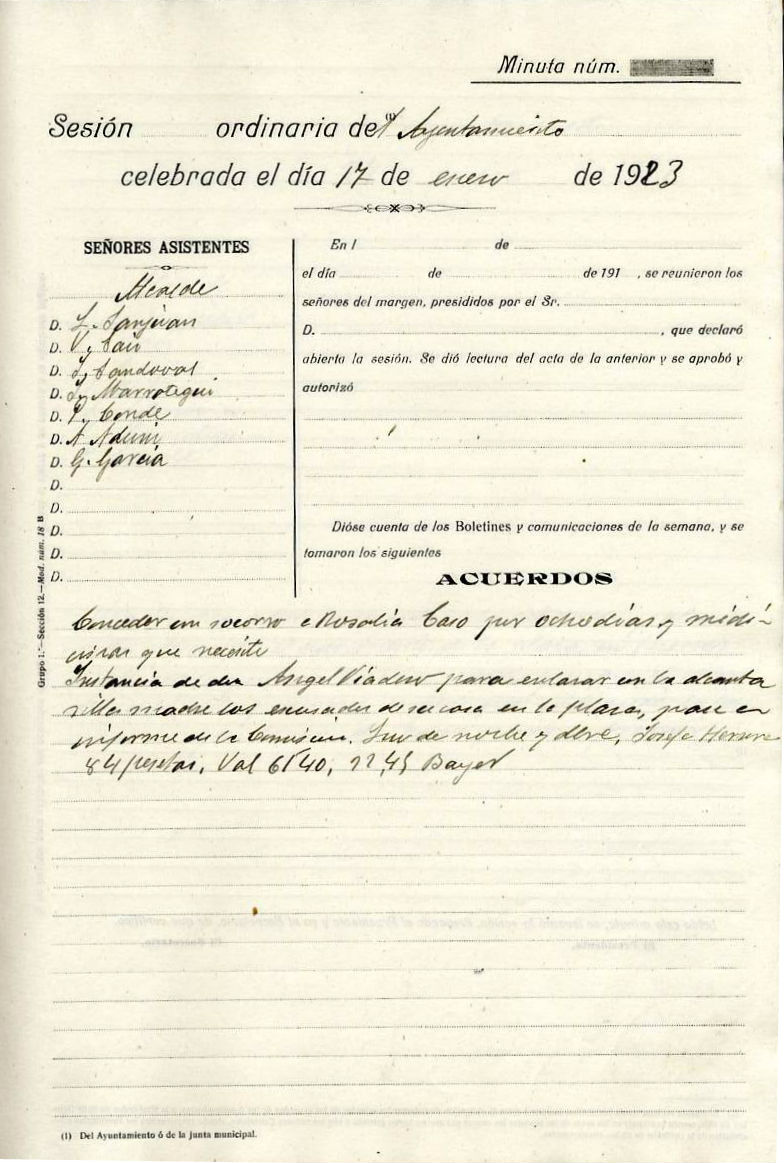 Minuta núm.
Sesión ordinaria del (1) Ayuntamiento
celebrada el día 17 de enero de 1923
SEÑORES ASISTENTES
Alcalde
D. L. Sanjuan
D. V. Sail
D. S. Sandoval
D. J. Marrotegui
D. P. Conde
D. A. Aduni
D. G. Garcia
D.
D.
D.
D.
D.
En l de
el día de de 191 , se reunieron los
señores del margen, presididos por el Sr.
D. , que declaró
abierta la sesión. Se dió lectura del acta de la anterior y se aprobó y
autorizó
Dióse cuenta de los Boletines y comunicaciones de la semana, y se
tomaron los siguientes
ACUERDOS
Conceder un socorro a Rosalia Caso por ocho dias y medi-
cinas que necesite
Instancia de don Angel Viadero para enlazar con la alcanta
rilla madre los excusados de su casa en la plaza, pase a
informe de la Comision. de noche y Josefa Herrera
84 pesetas, Val 61'40, 22,45 Bayer
Grupo 1.º—Sección 12.—Mod. núm. 18 B
(1) Del Ayuntamiento ó de la Junta municipal.